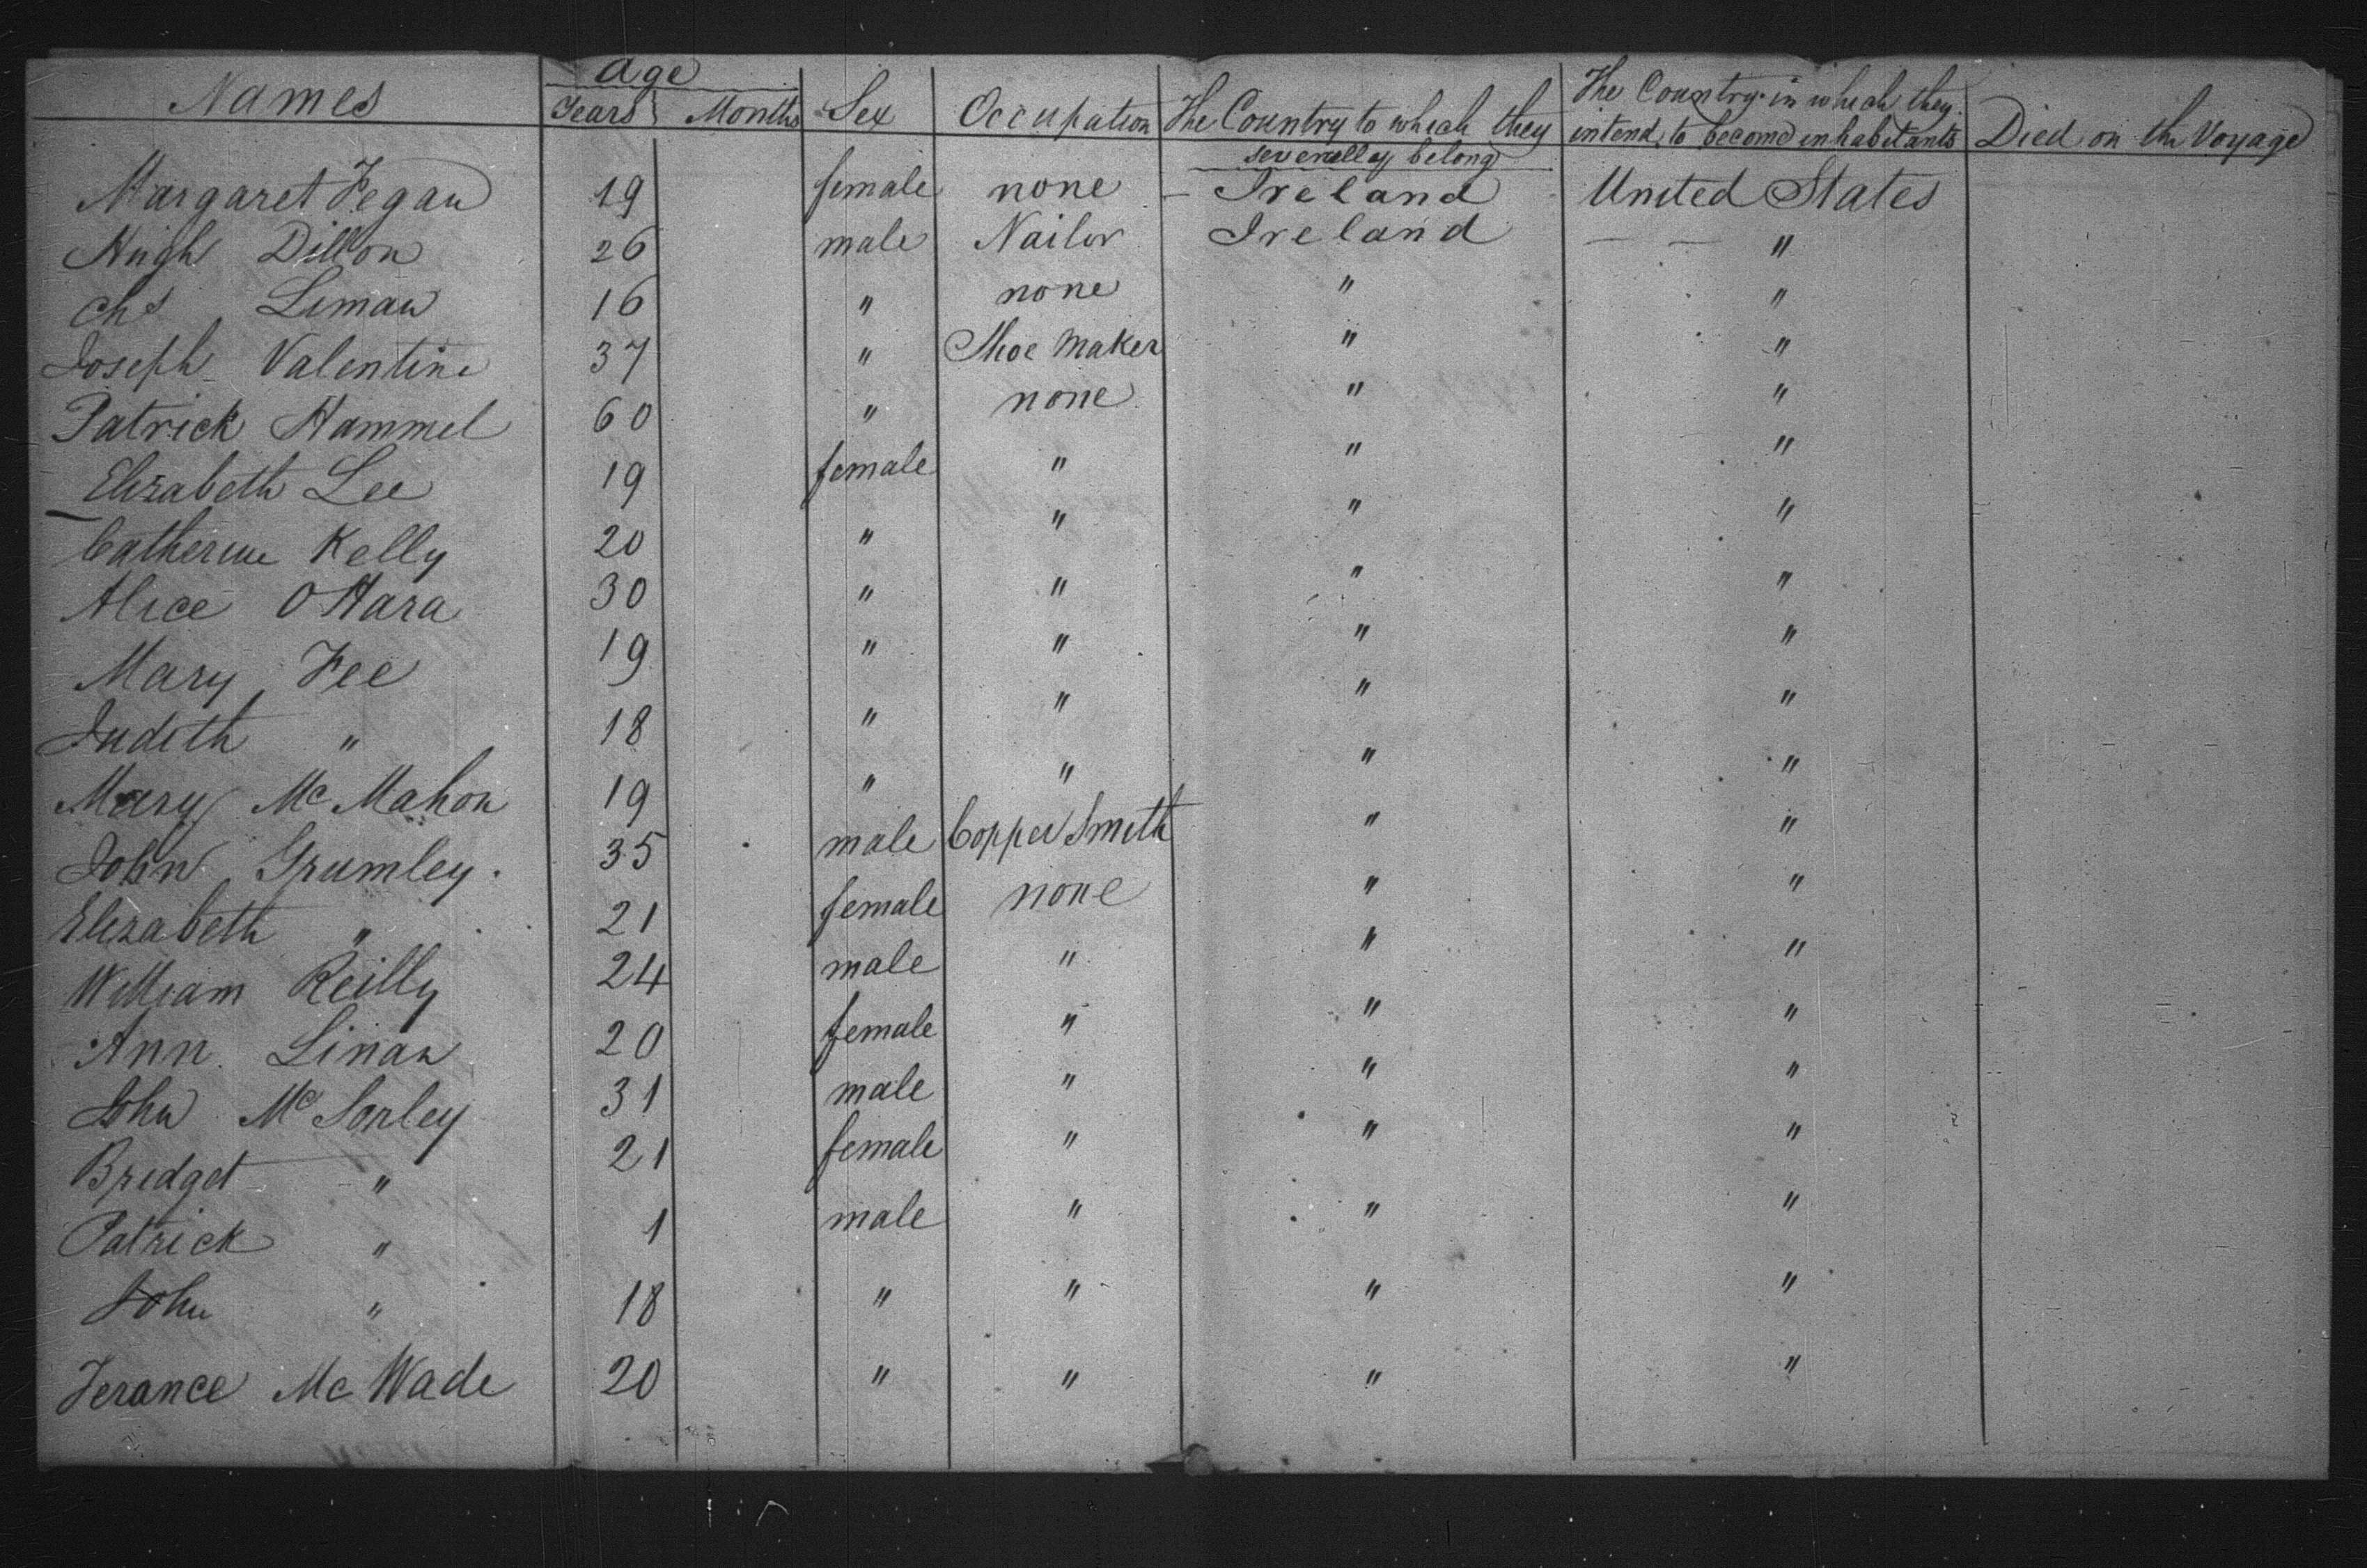 Names Age Years Months Sex Occupation The Country to which they severally belong The Country in which they intend to become inhabitants Died on the Voyage
Margaret Fegan 19 female none Ireland United States
Hugh Dillon 26 male Nailor Ireland "
Chs Liman 16 " none " "
Joseph Valentine 37 " Shoe Maker " "
Patrick Hammel 60 " none " "
Elizabeth Lee 19 female " " "
Catherine Kelly 20 " " " "
Alice O Hara 30 " " " "
Mary Fee 19 " " " "
Judith " 18 " " " "
Mary Mc Mahon 19 " " " "
John Grumley. 35 male Copper Smith " "
Elizabeth " 21 female none " "
William Reilly 24 male " " "
Ann Linan 20 female " " "
John Mc Sorley 31 male " " "
Bridget " 21 female " " "
Patrick " 1 male " " "
John " 18 " " " "
Terance Mc Wade 20 " " " "